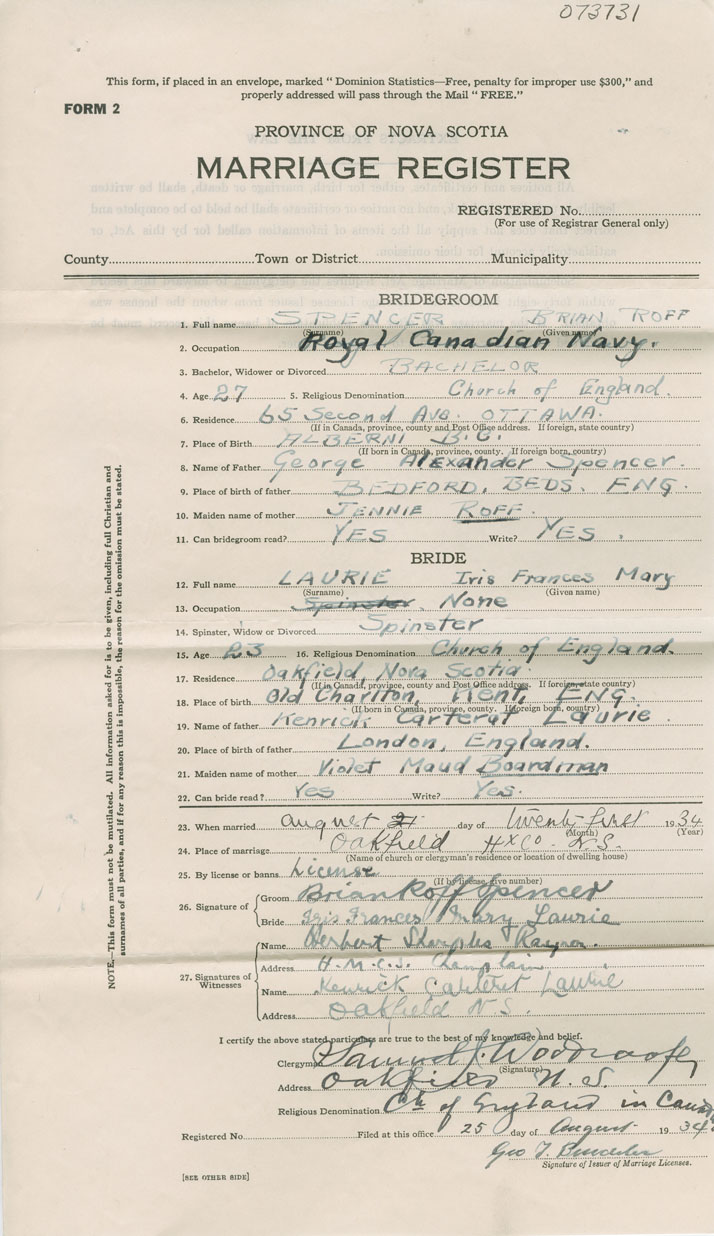 073731
This form, if placed in an envelope, marked " Dominion Statistics—Free, penalty for improper use $300," and
properly addressed will pass through the Mail " FREE."
FORM 2
PROVINCE OF NOVA SCOTIA
MARRIAGE REGISTER
REGISTERED No.
(For use of Registrar General only)
County Town or District Municipality
BRIDEGROOM
1. Full name SPENCER BRIAN ROFF
(Surname) (Given name)
2. Occupation Royal Canadian Navy.
3. Bachelor, Widower or Divorced BACHELOR
4. Age 27 5. Religious Denomination Church of England.
6. Residence 65 Second Ave. OTTAWA.
(If in Canada, province, county and Post Office address. If foreign, state country)
7. Place of Birth ALBERNI B.C.
(If born in Canada, province, county. If foreign born, country)
8. Name of Father George Alexander Spencer.
9. Place of birth of father BEDFORD, BEDS, ENG.
10. Maiden name of mother JENNIE ROFF.
11. Can bridegroom read? YES Write? YES
BRIDE
12. Full name LAURIE Iris Frances Mary
(Surname) (Given name)
13. Occupation Spinster. None
14. Spinster, Widow or Divorced Spinster
15. Age 23 16. Religious Denomination Church of England.
17. Residence Oakfield, Nova Scotia
(If in Canada, province, county and Post Office address. If foreign, state country)
18. Place of birth Old Charlton, Kent, ENG.
(If born in Canada, province, county. If foreign born, country)
19. Name of father Kenrick Carteret Laurie
20. Place of birth of father London, England.
21. Maiden name of mother Violet Maud Boardman
22. Can bride read? Yes Write? Yes.
23. When married August 21 day of Twenty-first 1934
(Month) (Year)
24. Place of marriage Oakfield Hx Co. N.S.
(Name of church or clergyman's residence or location of dwelling house)
25. By license or banns License
(If by license, give number)
26. Signature of Groom Brian Roff Spencer
Bride Iris Frances Mary Laurie
27. Signatures of Witnesses Name Herbert Sharples Rayner.
Address H.M.C.S. Champlain
Name Kenrick Carteret Laurie
Address Oakfield N.S.
I certify the above stated particulars are true to the best of my knowledge and belief.
Clergyman Samuel J. Woodroofe
(Signature)
Address Oakfield N.S.
Religious Denomination Ch of England in Canada
Registered No. Filed at this office 25 day of August 1934
Geo T.
Signature of Issuer of Marriage Licenses.
[SEE OTHER SIDE]
NOTE.—This form must not be mutilated. All information asked for is to be given, including full Christian and
surnames of all parties, and if for any reason this is impossible, the reason for the omission must be stated.